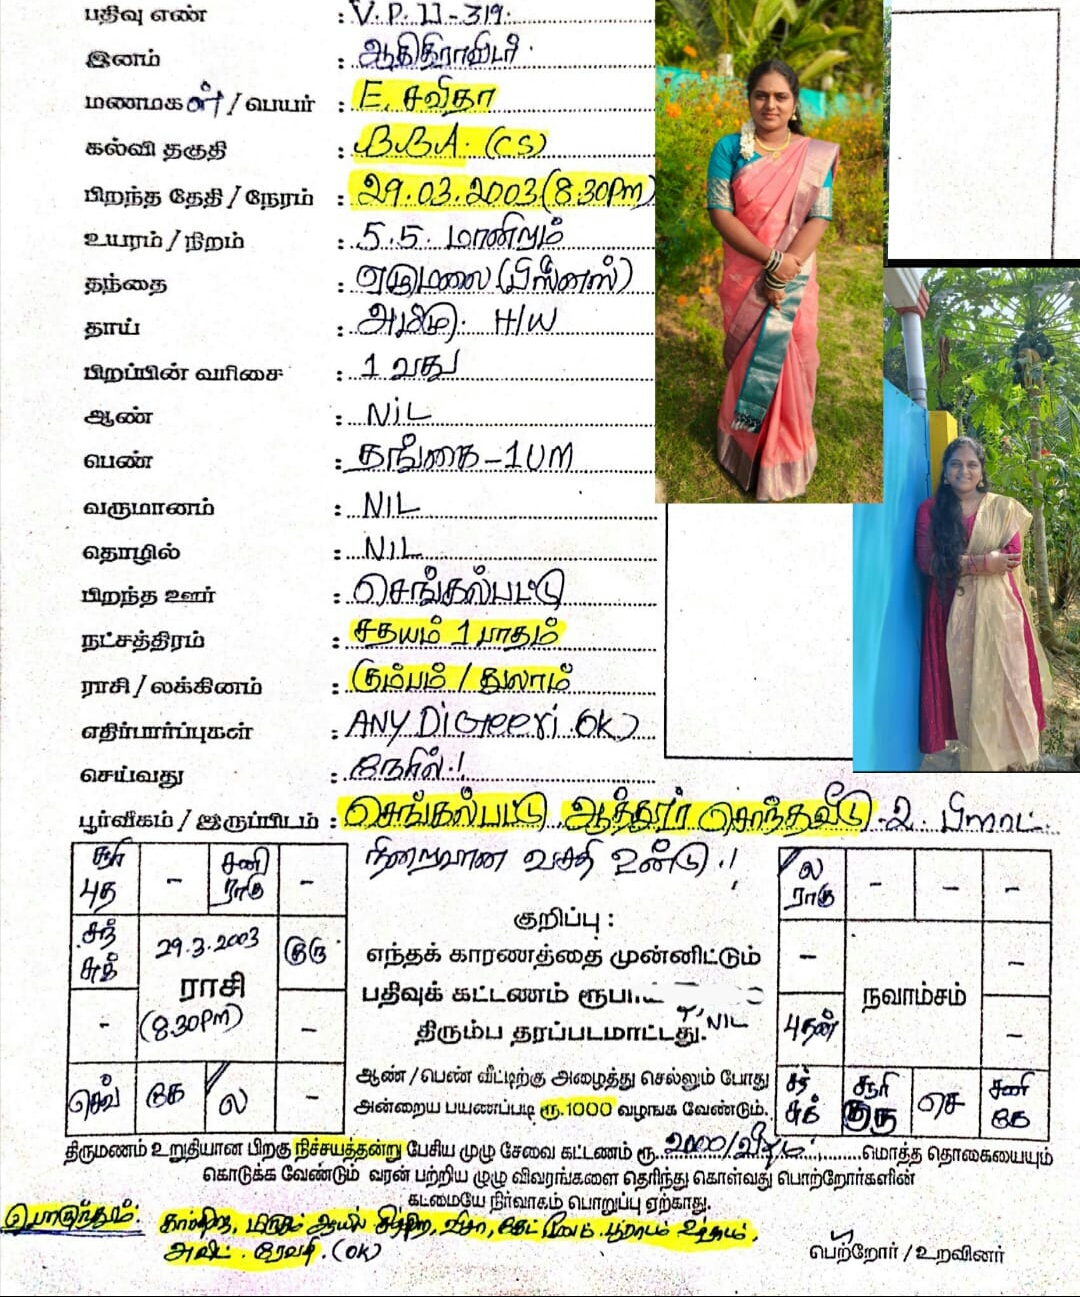 பதிவு எண் : V.P. II-319.
இனம் : ஆதிதிராவிடர்
மணமகள் / பெயர் : E. சவிதா
கல்வி தகுதி : BBA. (CS)
பிறந்த தேதி / நேரம் : 29.03.2003 (8.30Pm)
உயரம் / நிறம் : 5.5. மாநிறம்
தந்தை : ஏழுமலை (பிஸ்னஸ்)
தாய் : H/W
பிறப்பின் வரிசை : 1 வது
ஆண் : NiL
பெண் : தங்கை - 1 UM
வருமானம் : NIL
தொழில் : NIL
பிறந்த ஊர் : செங்கல்பட்டு
நட்சத்திரம் : சதயம் 1 பாதம்
ராசி / லக்கினம் : கும்பம் / துலாம்
எதிர்பார்ப்புகள் : ANY DiGreeri OK)
செய்வது : நேரில் !
பூர்வீகம் / இருப்பிடம் : செங்கல்பட்டு ஆத்தூர் சொந்தவீடு - 2. பிளாட்
நிறைவான வசதி உண்டு . !
சூரி புத - சனி ராகு -
சந் சுக் 29.3.2003 ராசி (8.30PM) குரு
- -
செவ் கே ல -
குறிப்பு :
எந்தக் காரணத்தை முன்னிட்டும்
பதிவுக் கட்டணம் ரூபாய்
திரும்ப தரப்படமாட்டது. NIL
ஆண் / பெண் வீட்டிற்கு அழைத்து செல்லும் போது
அன்றைய பயணப்படி ரூ.1000 வழங்க வேண்டும்.
ல ராகு - - -
- நவாம்சம் -
புதன் -
சந் சுக் சூரி குரு செ சனி கே
திருமணம் உறுதியான பிறகு நிச்சயத்தன்று பேசிய முழு சேவை கட்டணம் ரூ. 2000/ மொத்த தொகையையும்
கொடுக்க வேண்டும் வரன் பற்றிய முழு விவரங்களை தெரிந்து கொள்வது பெற்றோர்களின்
கடமையே நிர்வாகம் பொறுப்பு ஏற்காது.
பொருந்தும். கார்த்திகை, மிருகம் ஆயில் சித்திரை, விசா, கேட்டை பூராடம் உத்ராடம்,
அவிட். ரேவதி. (OK)
பெற்றோர் / உறவினர்